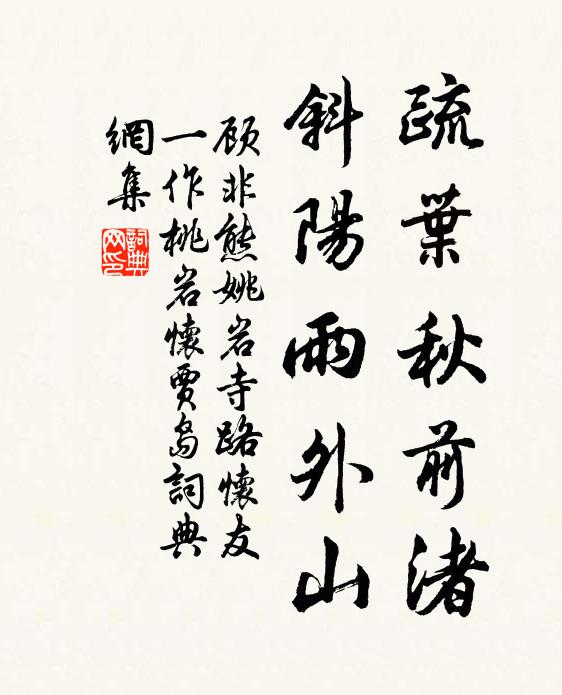 疏葉秋前渚
斜陽雨外山
顾非熊姚岩寺路懷友
一作桃岩懷賈岛詞典
網集
詞典
网印